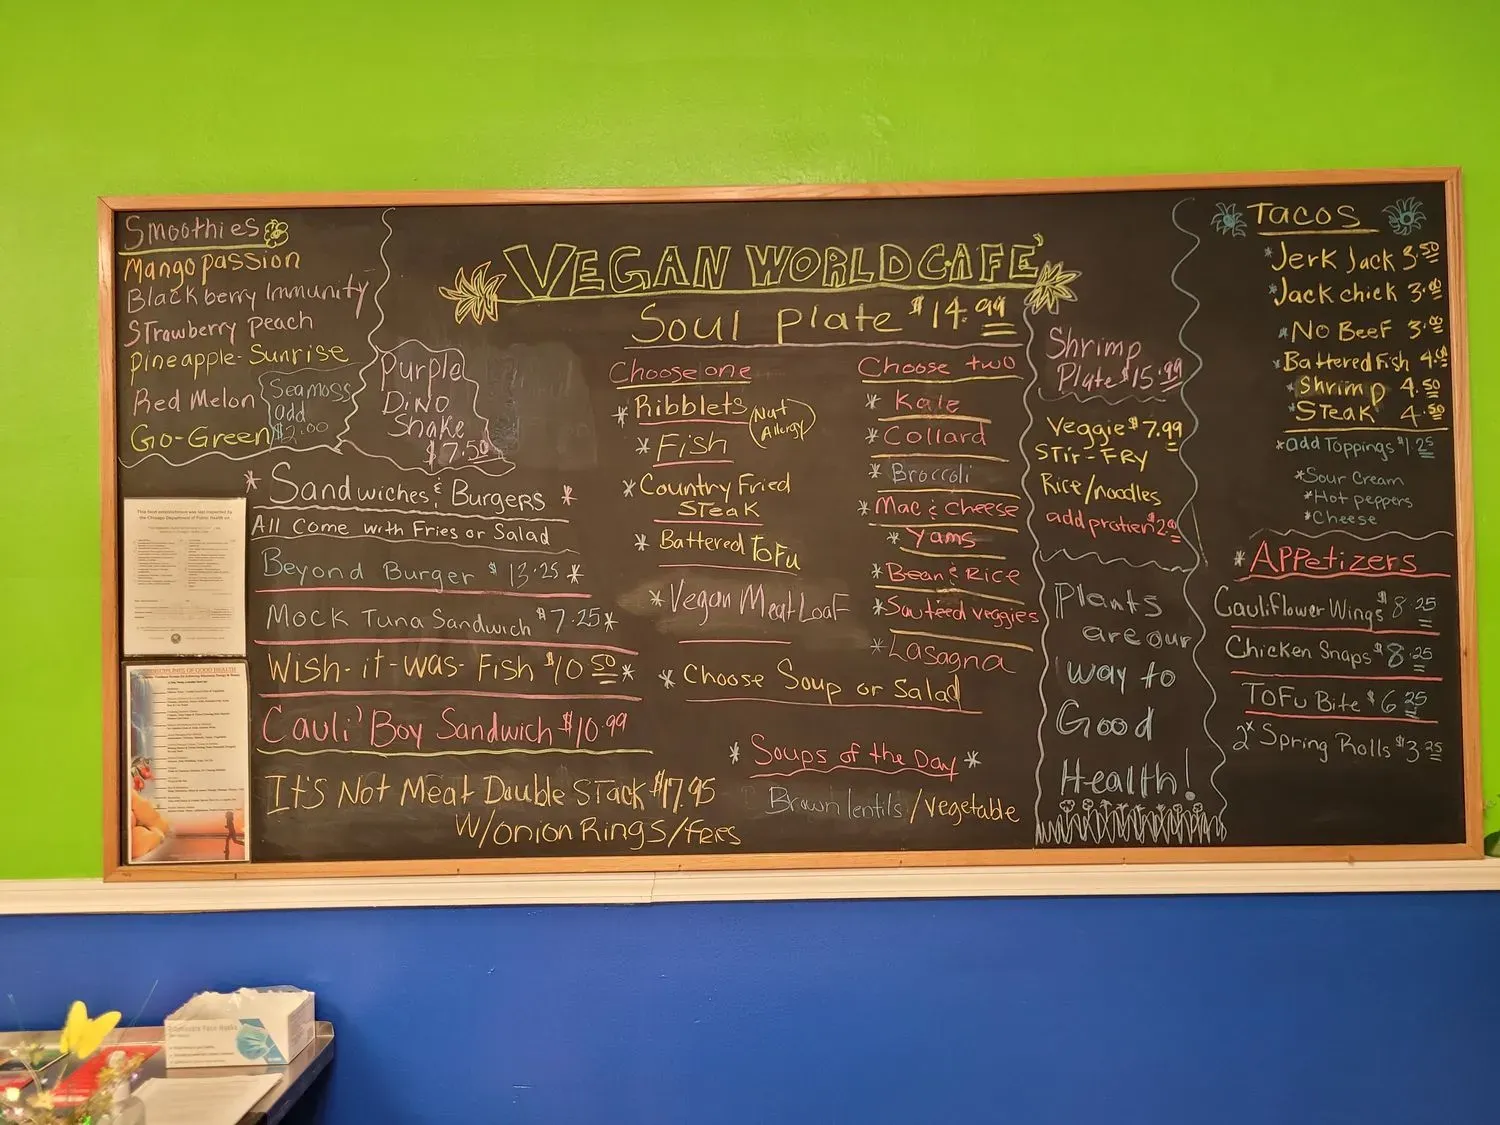 Smoothies
Mango passion
Blackberry Immunity
Strawberry Peach
Pineapple-Sunrise
Red Melon
Go-Green
Seamoss
add
$2.00
Purple
Dino
Shake
$7.50
*Sandwiches & Burgers*
All Come with Fries or Salad
Beyond Burger $13.25*
Mock Tuna Sandwich $7.25*
Wish-it-was-Fish $10.50*
Cauli' Boy Sandwich $10.99
It's Not Meat Double Stack $17.95
w/onion Rings/fries
VEGAN WORLD CAFE'
Soul Plate $14.99
Choose one
*Ribblets (Nut
Allergy)
*Fish
*Country Fried
Steak
*Battered Tofu
*Vegan Meat Loaf
*Choose Soup or Salad
Choose two
*Kale
*Collard
*Broccoli
*Mac & Cheese
*Yams
*Bean & Rice
*Sauteed veggies
*Lasagna
*Soups of the Day*
Brown lentils/vegetable
Shrimp
Plate $15.99
Veggie $7.99
Stir-Fry
Rice/noodles
add protien $2.00
Plants
are our
way to
Good
Health!
Tacos
*Jerk Jack 3.50
*Jack chick 3.00
*No Beef 3.00
*Battered Fish 4.00
*Shrimp 4.50
*Steak 4.50
*add Toppings $1.25
*Sour Cream
*Hot peppers
*Cheese
*Appetizers
Cauliflower Wings $8.25
Chicken Snaps $8.25
Tofu Bite $6.25
2* Spring Rolls $3.25
This food establishment was last inspected by
the Chicago Department of Public Health on
PRINCIPLES OF GOOD HEALTH
Disposable Face Masks